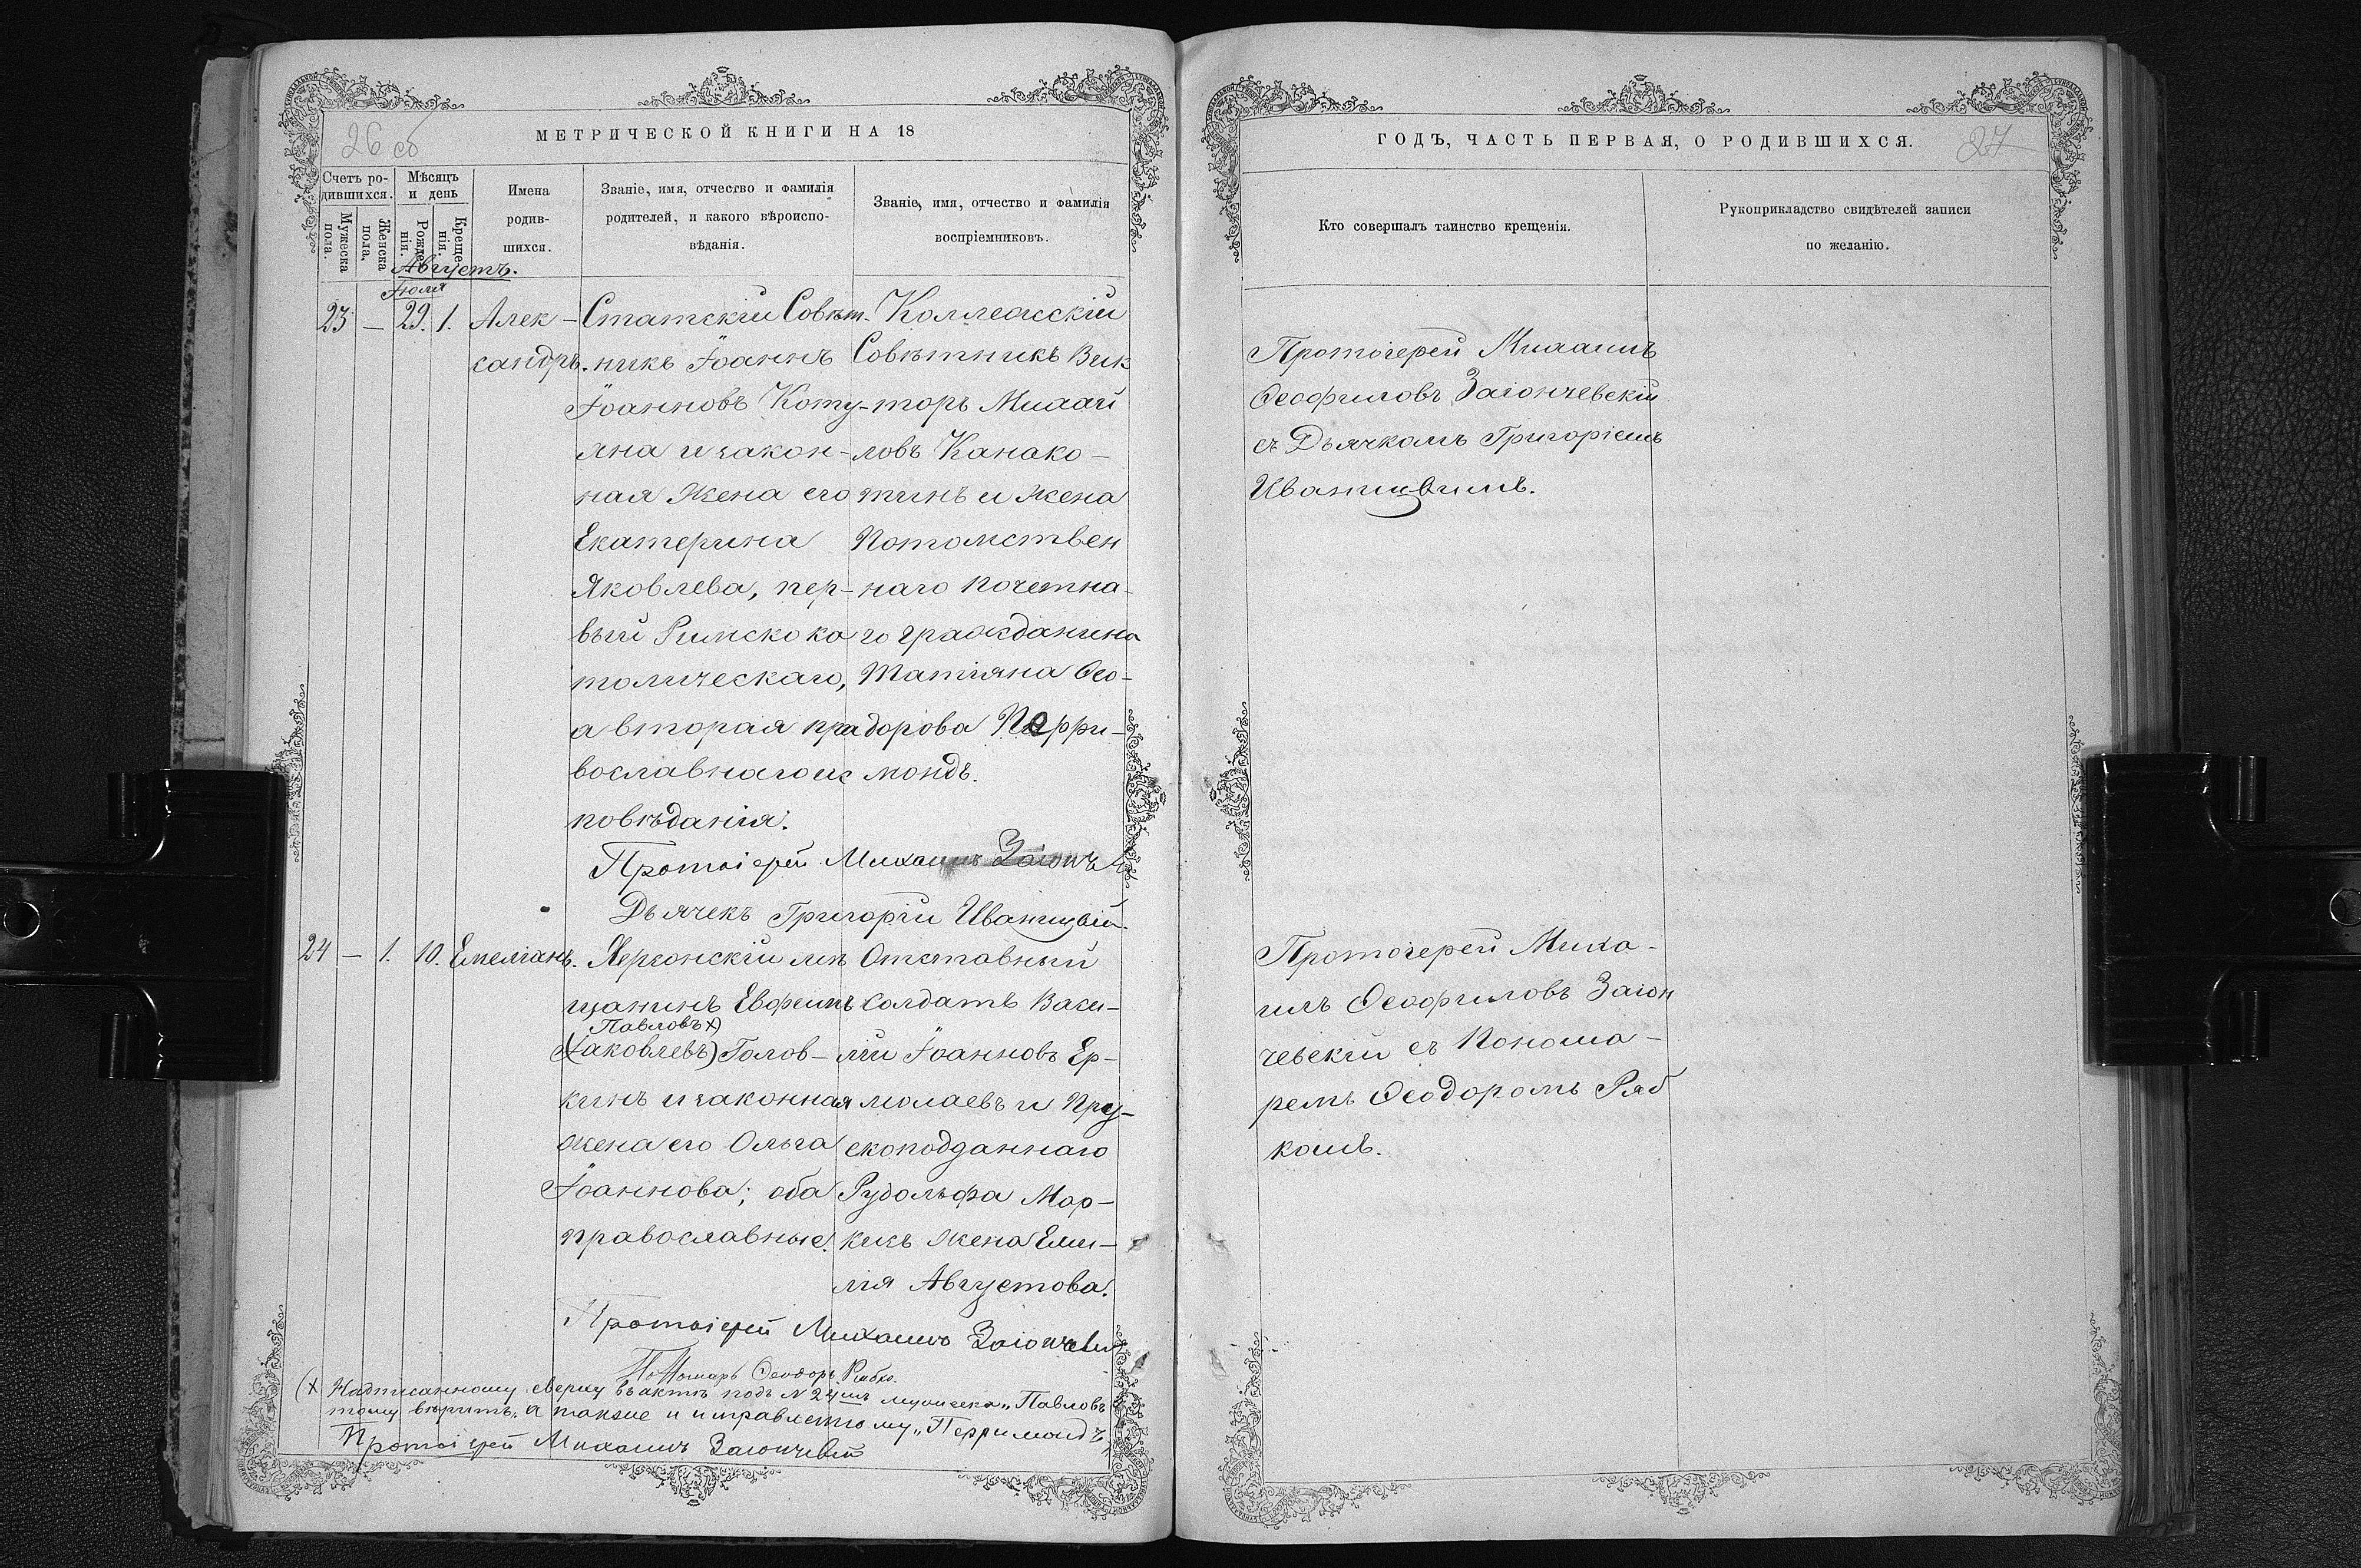 26 об
МЕТРИЧЕСКОЙ КНИГИ НА 18
Счетъ ро-
дившихся.
Мѣсяцъ
и день
Мужеска
пола.
Женска
пола.
Рожде-
нія.
Креще-
нія.
Имена
родив-
шихся.
Званіе, имя, отчество и фамилія
родителей, и какого вѣроиспо-
вѣданія.
Званіе, имя, отчество и фамилія
воспріемниковъ.
Августъ.
Іюля
23 — 29. 1. Алек-
сандръ.
Статскій Совѣт-
никъ Іоаннъ
Іоанновъ Коту-
яна и закон-
ная жена его
Екатерина
Яковлева, пер-
вый Римскока
толическаго,
а вторая пра
вославнаго ис
повѣданія.
Коллежскій
Совѣтникъ Вик
торъ Михай
ловъ Канако-
тинъ и жена
Потомствен
наго почетна-
го гражданина
Татіяна Ѳео-
дорова Перри-
мондъ.
Протоіерей Михаилъ Заіонч
Дьячекъ Григорій Иваницвій.
24 — 1. 10. Емеліанъ.
Херсонскій мѣ
щанинъ Евфимъ
Павловъ х)
(Іаковлевъ) Голов-
кинъ и законная
жена его Ольга
Іоаннова; оба
православные.
Отставный
солдатъ Васи-
лій Іоанновъ Ер-
молаевъ и Пру-
скоподданнаго
Рудольфа Мар-
кикъ жена Еми-
лія Августова.
Протоіерей Михаилъ Заіончевій
Пономарь Ѳеодоръ Рябко.
(х Надписанному сверху въ актѣ подъ № 24мъ мужеска „Павловъ
тому вѣрить, а также и исправленному „Перримондъ
Протоіерей Михаилъ Заіончевій
ГОДЪ, ЧАСТЬ ПЕРВАЯ, О РОДИВШИХСЯ.
27
Кто совершалъ таинство крещенія.
Рукоприкладство свидѣтелей записи
по желанію.
Протоіерей Михаилъ
Ѳеофиловъ Заіончевскій
съ Дьячкомъ Григоріемъ
Иваницвимъ.
Протоіерей Миха-
илъ Ѳеофиловъ Заіон
чевскій съ Понома-
ремъ Ѳеодоромъ Ряб
комъ.